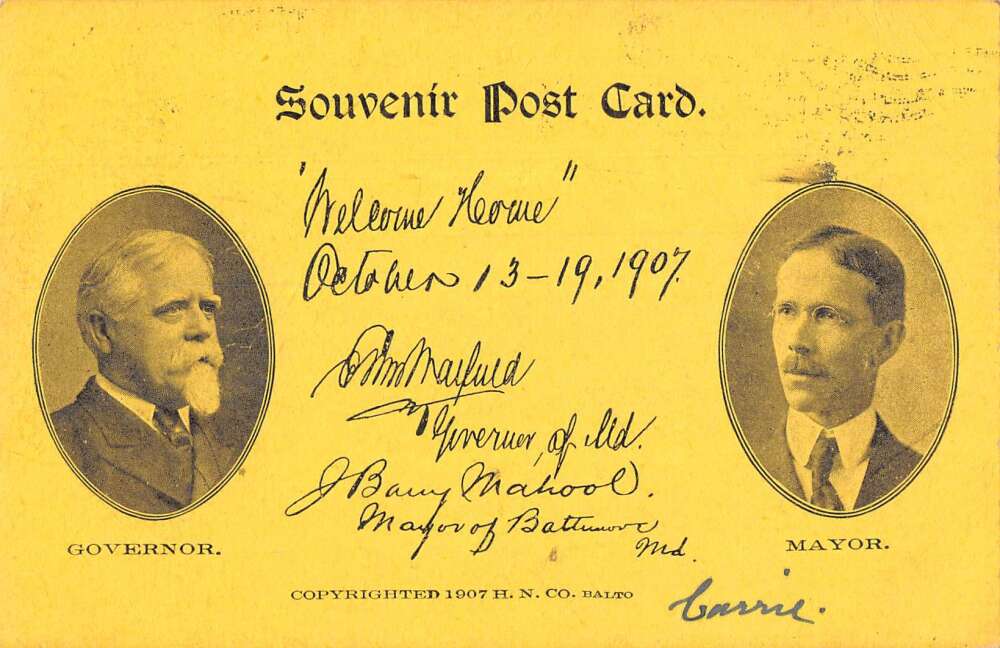 Souvenir Post Card.
"Welcome Home"
October 13-19, 1907.
Edwin Warfield
Governor, of Md.
J Barry Mahool.
Mayor of Baltimore
Md.
GOVERNOR.
MAYOR.
COPYRIGHTED 1907 H. N. CO. BALTO
Carrie.